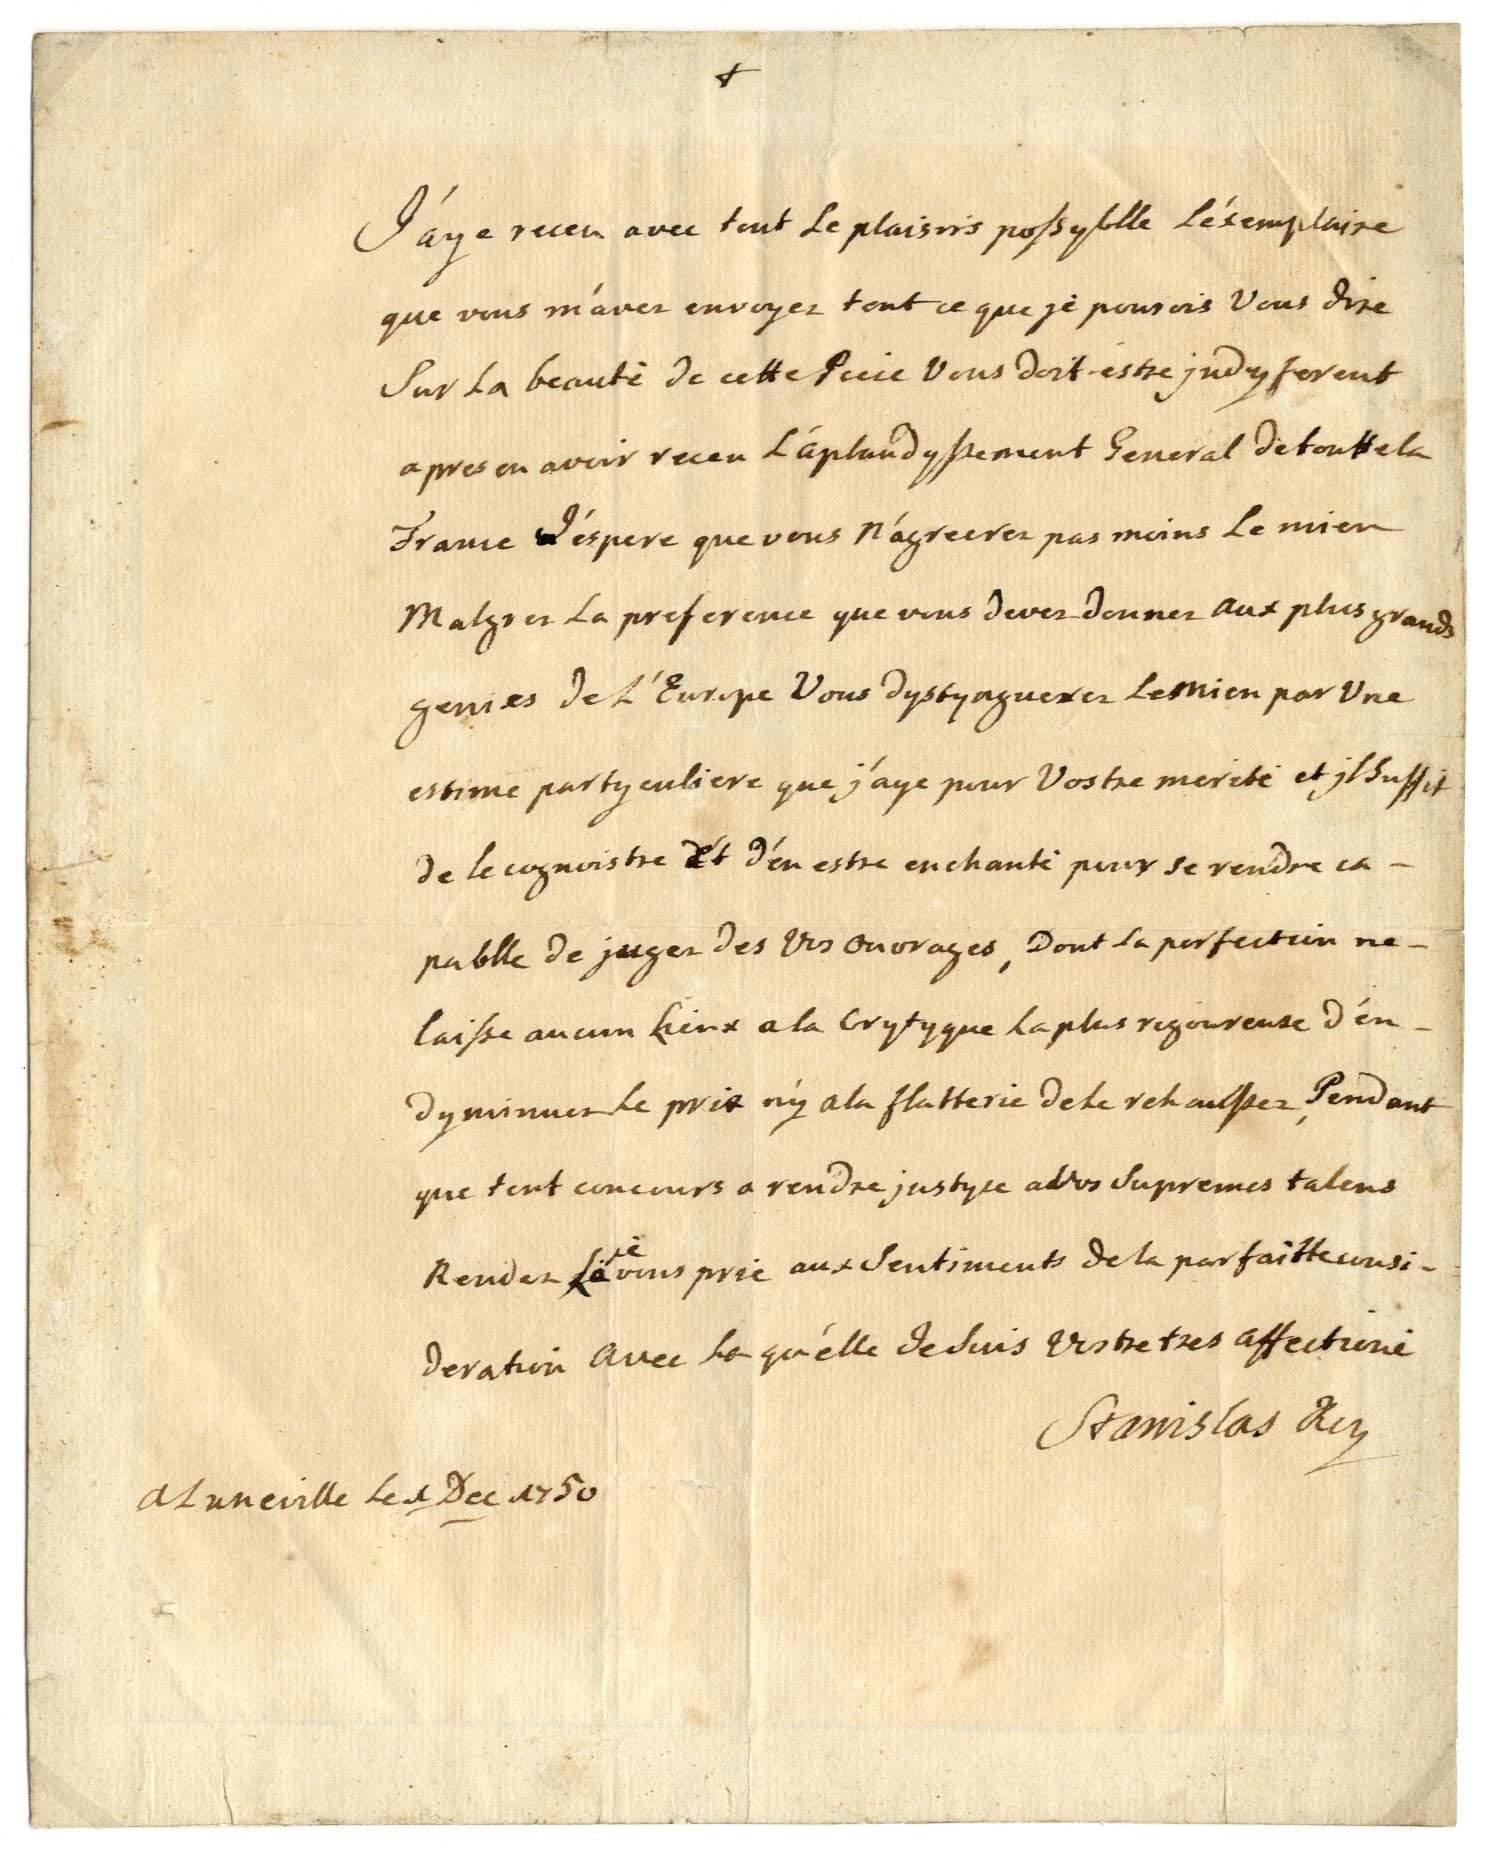 J'aye receu avec tout Le plaisirs possyblle L'éxemplaire
que vous m'avez envoyez tout ce que jé pourois Vous dire
Sur La beauté de cette Piece Vous doit estre jndyferent
apres en avoir receu L'áplaudyssement General de toutte la
France J'éspere que vous n'ágreerez pas moins Le mien
Malgrez La preference que vous devez donnez aux plus grands
genies de L'Europe Vous dystynguerez Le mien par Une
estime partyculiere que j'aye pour Vostre merité et jl Suffit
de le cognoistre et d'én estre enchanté pour se rendre ca-
pablle de jugez des Vos ouvrages, Dont la perfection ne-
laisse aucun Lieux a la Crytyque La plus rigoureuse d'én-
dyminuez Le prix n'y a la flatterie de Le rehaussez, Pendant
que tout concours a rendre justyce a Vos Supremes talens
Rendez la ié vous prie aux Sentiments de la parfaitte consi-
deration avec La qu'élle Je Suis Vostre tres affectioné
Stanislas Roy
a Luneville Le 1 Dec 1750